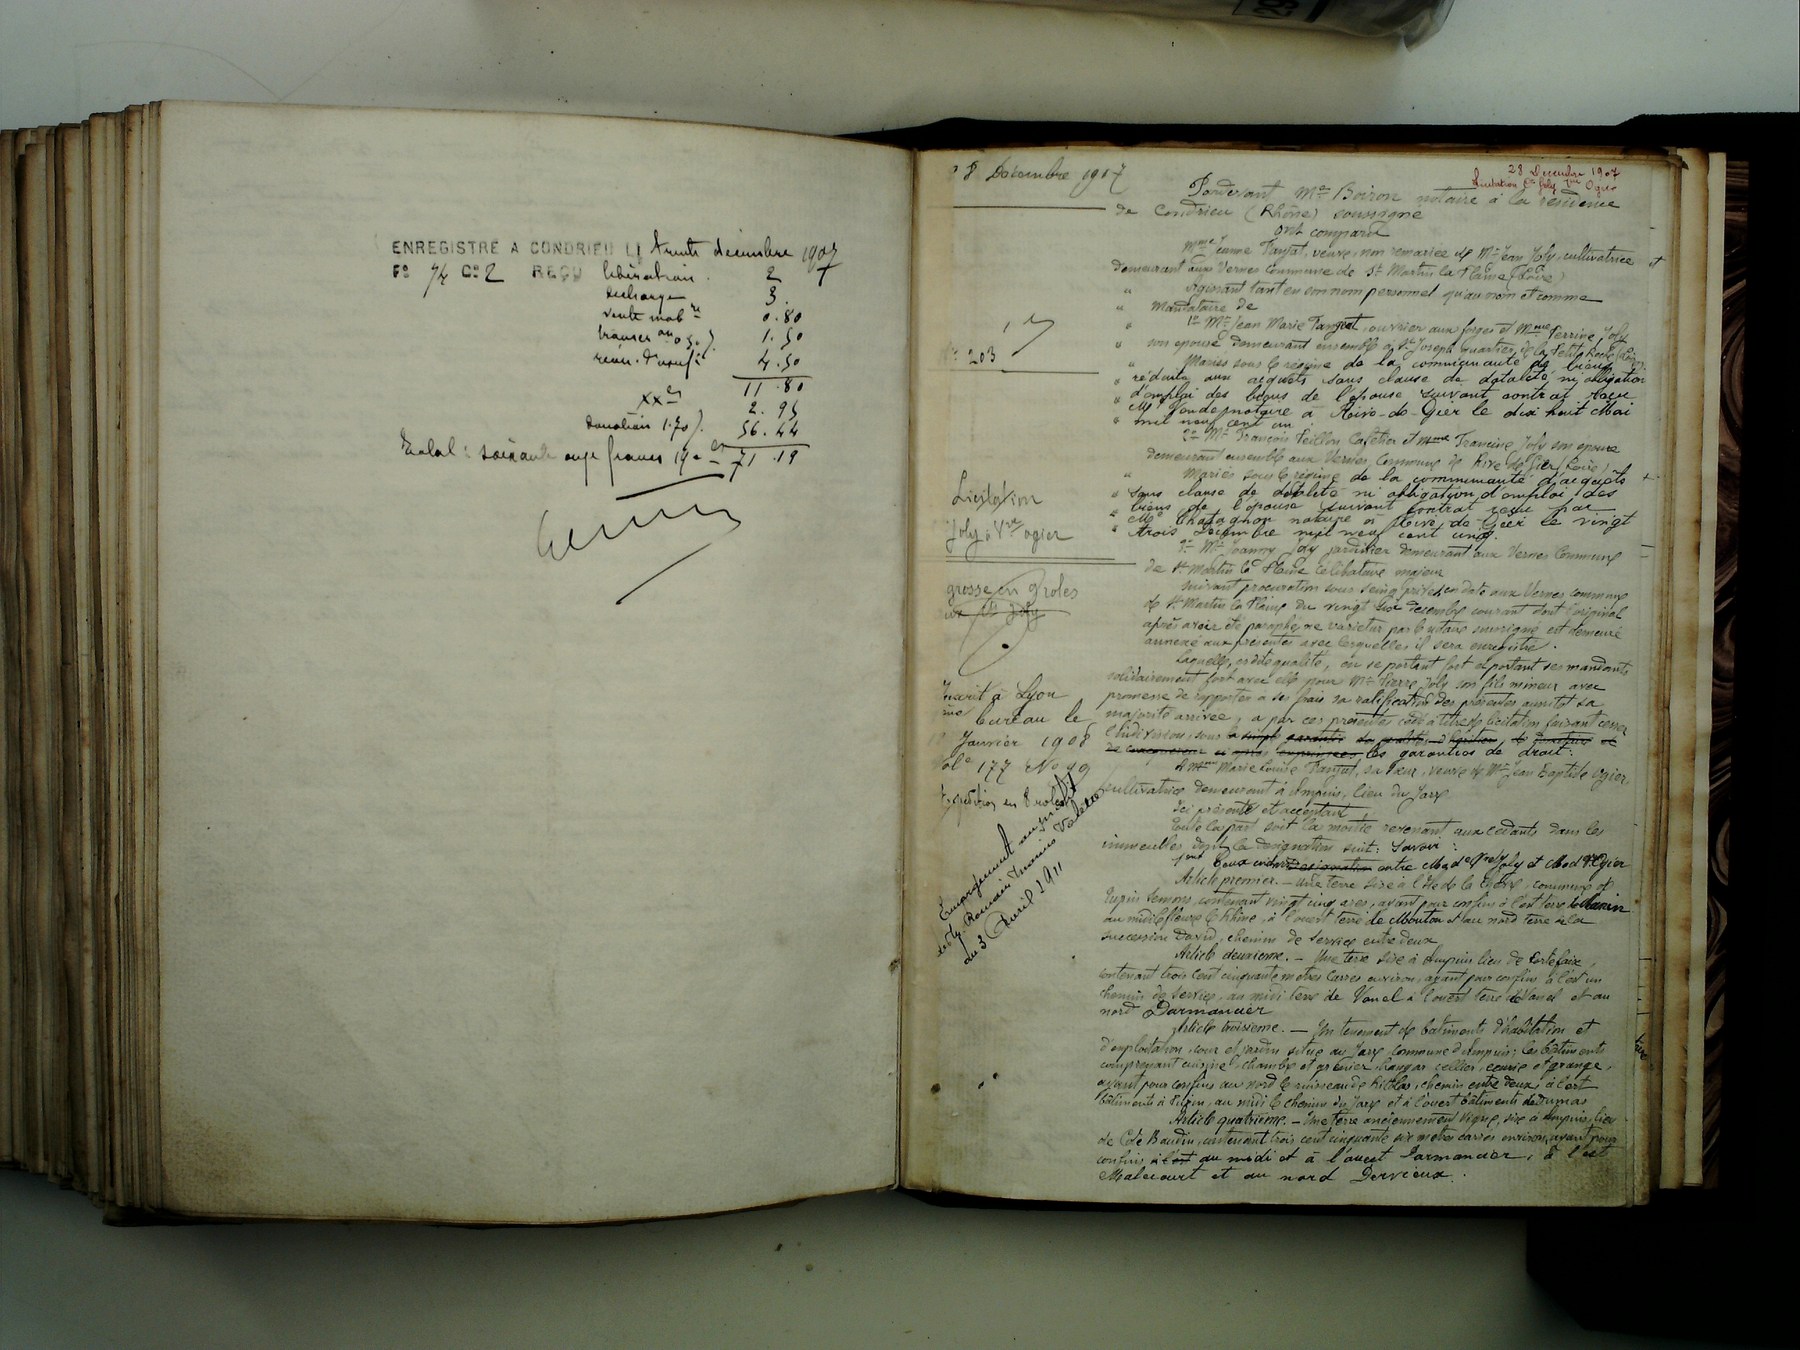 ENREGISTRÉ A CONDRIEU LE trente décembre 1907
F° 74 C° 2 REÇU libération. 2
décharge 3.
vente mob re 0.80
1.50
4.50
11.80
xx es 2.95
donation 1.70 %. 56.44
Total: soixante onze francs 19 c 71.19
28 Decembre 1907
28 Decembre 1907
Licitation Joly Ogier
N° 203
Licitation
Joly à Vve Ogier
grosse en 9 roles
Inscrit à Lyon
bureau le
Janvier 1908
Vol e 177 N° 49
Expédition en 8 roles
Emargement au profit
du 3 Avril 1911
Pardevant Me Boiron notaire à la résidence
de Condrieu (Rhône) soussigné
ont comparu
Mme Jeanne Fanjat, veuve, non remariée de Mr Jean Joly, cultivatrice et
demeurant aux Vernes Commune de St Martin la Plaine (Loire)
" agissant tant en son nom personnel qu'au nom et comme
" mandataire de
" 1° Mr Jean Marie Fanget, ouvrier aux forges et Mme Perrine Joly
" son épouse demeurant ensemble à St Joseph quartier de la Petite Roche (Loire)
" Mariés sous le régime de la communauté de biens
" réduite aux acquets sans clause de dotalité ni obligation
" d'emploi des biens de l'épouse suivant contrat reçu
" Me notaire à Rive-de-Gier le dix huit Mai
" mil neuf cent un.
2° Mr François Peillon Cafetier et Mme Francine Joly son épouse
demeurant ensemble aux Vernes Commune de Rive de Gier (Loire)
" Mariés sous le régime de la communauté d'acquets
" sans clause de dotalité ni obligation d'emploi des
" biens de l'épouse suivant contrat reçu par
" Me Chatagnon notaire à Rive de Gier le vingt
" trois Décembre mil neuf cent cinq.
3° Mr Joanny Joly jardinier demeurant aux Vernes Commune
de St Martin la Plaine célibataire majeur
suivant procuration sous seing privé en date aux Vernes commune
de St Martin la Plaine du vingt six décembre courant dont l'original
après avoir été paraphé ne varietur par le notaire soussigné est demeuré
annexé aux présentes avec lesquelles il sera enregistré.
Laquelle, esdite qualité, en se portant fort et portant ses mandants
solidairement fort avec elle pour Mr Pierre Joly son fils mineur avec
promesse de rapporter à ses frais sa ratification des présentes aussitôt sa
majorité arrivée, a par ces présentes cédé à titre de licitation faisant cesser
l'indivision, sous les garanties de droit:
à Mme Marie Louise Fanjat, sa sœur, veuve de Mr Jean Baptiste Ogier
cultivatrice demeurant à Ampuis, lieu du
Ici présente et acceptant,
Toute la part soit la moitié revenant aux cédants dans les
immeubles dont la désignation suit: Savoir:
entre Made Vve Joly et Mad Vve Ogier
Article premier. — Une terre sise à l'Ile de la Chèvre, commune de
Tupin Semons, contenant vingt cinq ares, ayant pour confins à l'est terre
au midi le fleuve le Rhône, à l'ouest terre de Mouton et au nord terre à la
succession David, chemin de service entre deux
Article deuxième. — Une terre sise à Ampuis lieu de
contenant trois cent cinquante mètres carrés environ, ayant pour confins à l'est un
chemin de service, au midi terre de Vanel à l'ouest terre de Vanel et au
nord Darmancier
Article troisième. — Un tènement de bâtiments d'habitation et
d'exploitation, cour et jardin situé au commune d'Ampuis; les bâtiments
comprenant cuisine, chambre et grenier, hangar cellier, écurie et grange,
ayant pour confins au nord le ruisseau de chemin entre deux, à l'est
bâtiments à au midi le chemin du et à l'ouest bâtiments de Dumas
Article quatrième. — Une terre anciennement vigne, sise à Ampuis, lieu
de Côte Baudin, contenant trois cent cinquante six mètres carrés environ, ayant pour
confins au midi et à l'ouest Darmancier, à l'est
Malecourt et au nord Dervieux.